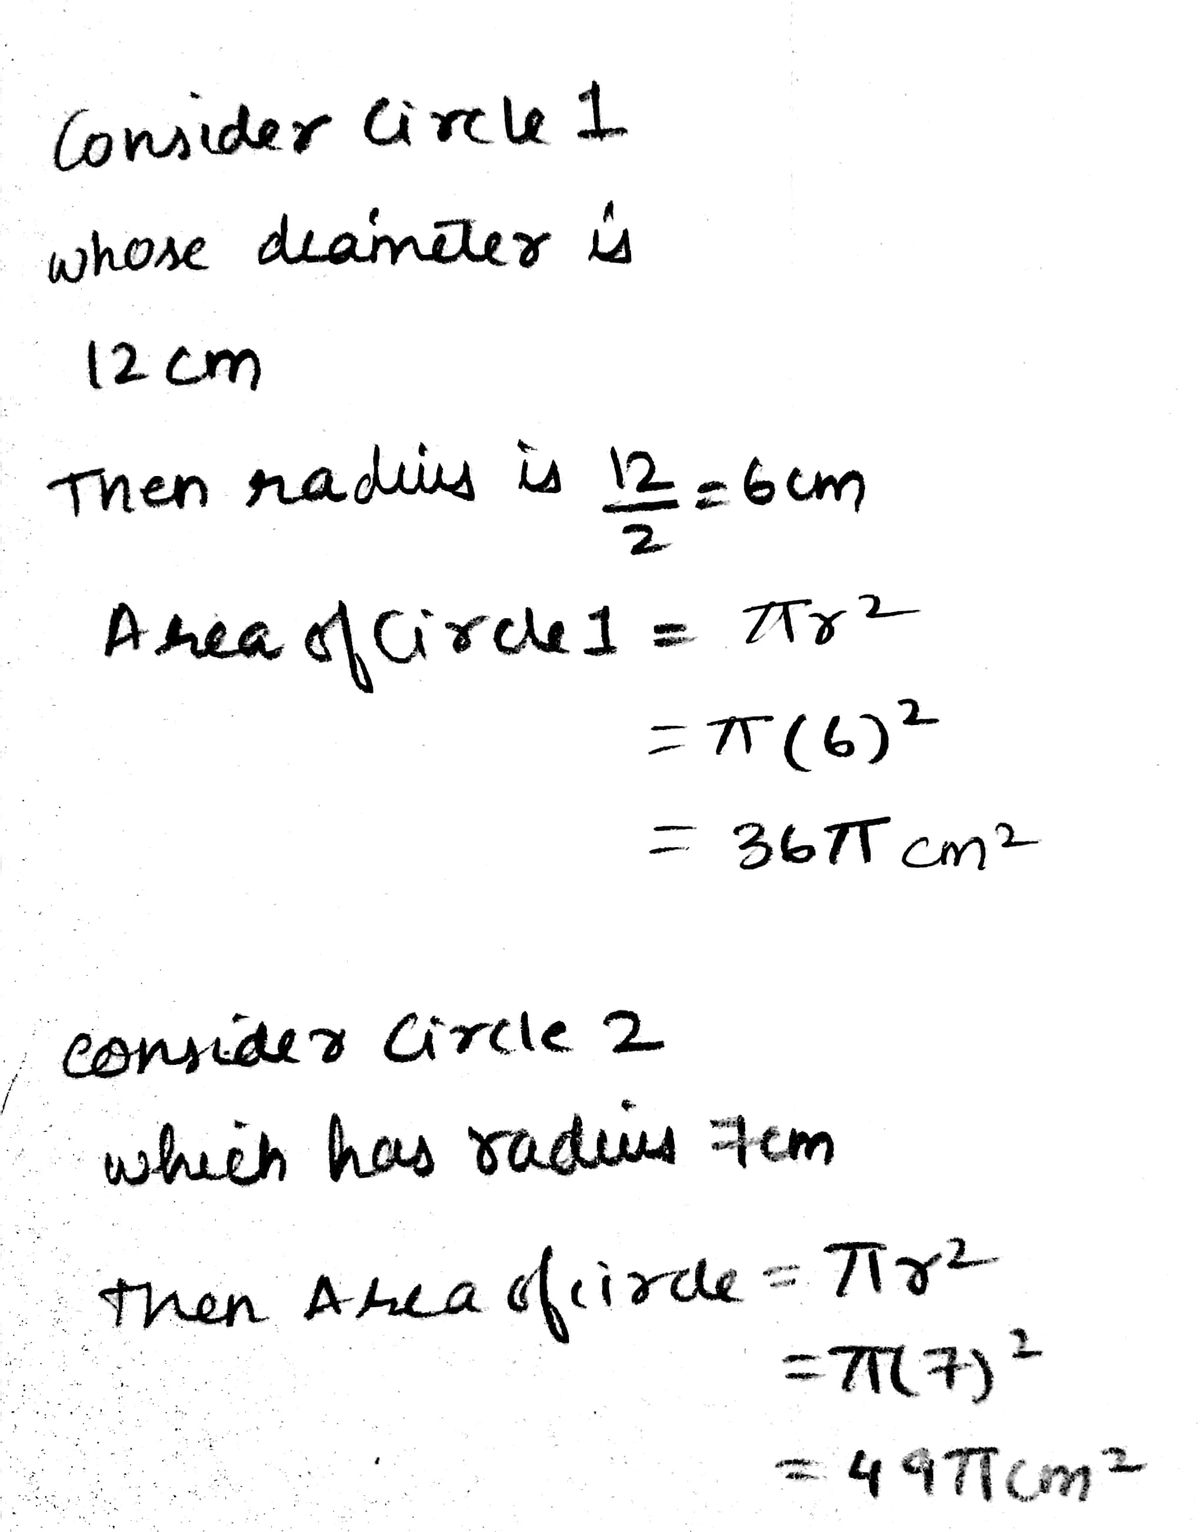 Consider Circle 1
whose diameter is
12 cm
Then radius is 12/2 = 6cm
Area of Circle 1 = πr²
= π(6)²
= 36π cm²
consider Circle 2
which has radius 7cm
then Area of circle = πr²
= π(7)²
= 49π cm²